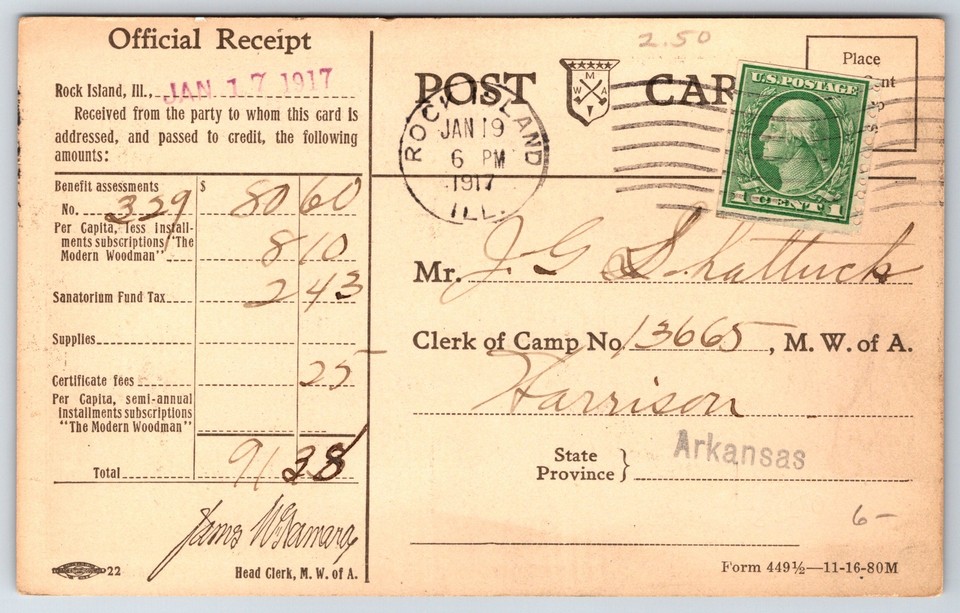 Official Receipt
Rock Island, Ill., JAN 17 1917
Received from the party to whom this card is
addressed, and passed to credit, the following
amounts:
Benefit assessments $
No. 329 80 60
Per Capita, less install-
ments subscriptions "The
Modern Woodman" 8 10
Sanatorium Fund Tax 2 43
Supplies
Certificate fees 25
Per Capita, semi-annual
installments subscriptions
"The Modern Woodman"
Total 91 38
Head Clerk, M. W. of A.
22
2.50
POST CAR
M
W A
Place
nt
U.S. POSTAGE
1 CENT 1
ROCK ISLAND
JAN 19
6 PM
1917
ILL.
Mr. J G Shattuck
Clerk of Camp No. 13665, M. W. of A.
Harrison
State
Province } Arkansas
6-
Form 449½—11-16-80M